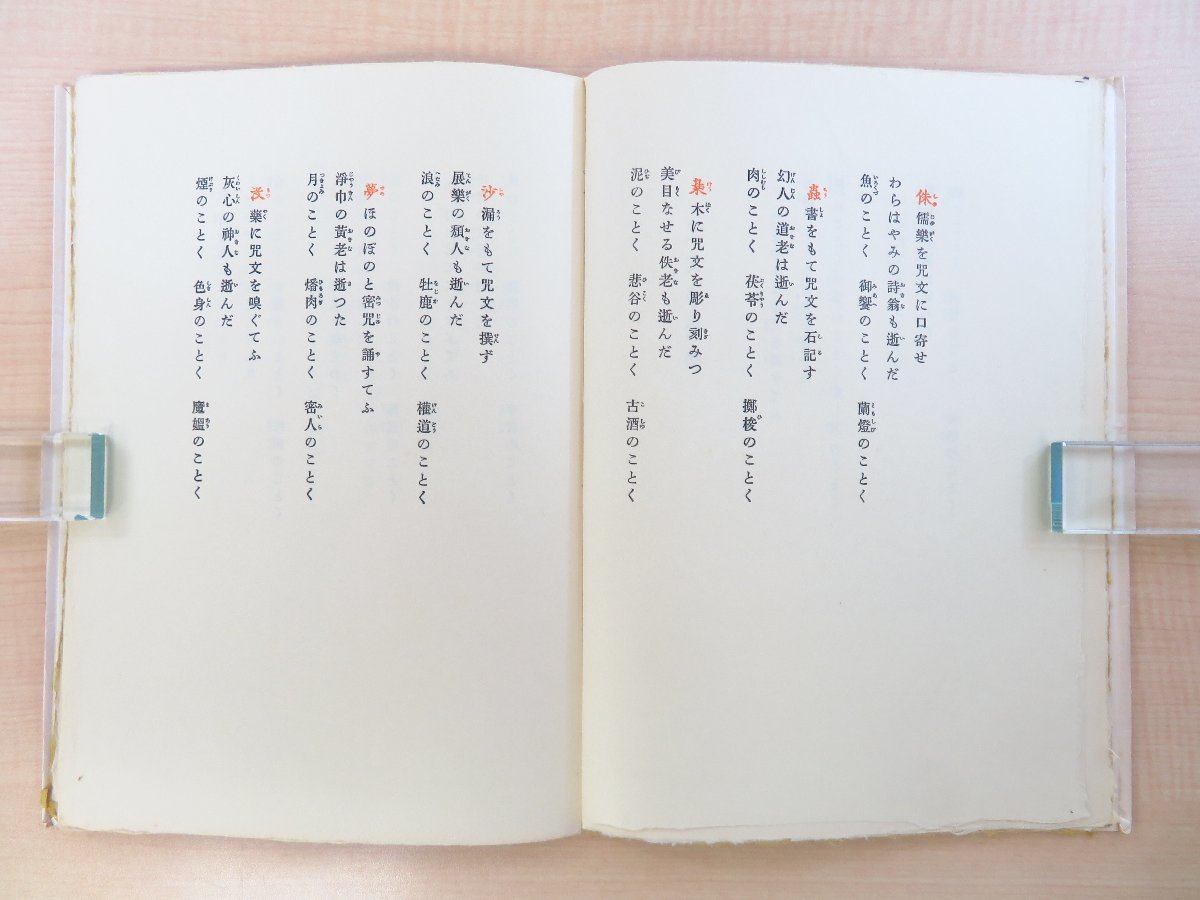 侏儒樂を咒文に口寄せ
わらはやみの詩翁も逝んだ
魚のことく 御饗のことく 蘭燈のことく
蟲書をもて咒文を石記す
幻人の道老は逝んだ
肉のことく 茯苓のことく 擲梭のことく
梟木に咒文を彫り刻みつ
美目なせる佚老も逝んだ
泥のことく 悲谷のことく 古酒のことく
沙漏をもて咒文を撰ず
展樂の頽人も逝んだ
浪のことく 牡鹿のことく 權道のことく
夢ほのぼのと密咒を誦すてふ
淨巾の黃老は逝つた
月のことく 燔肉のことく 密人のことく
沒藥に咒文を嗅ぐてふ
灰心の神人も逝んだ
煙のことく 色身のことく 魔媼のことく